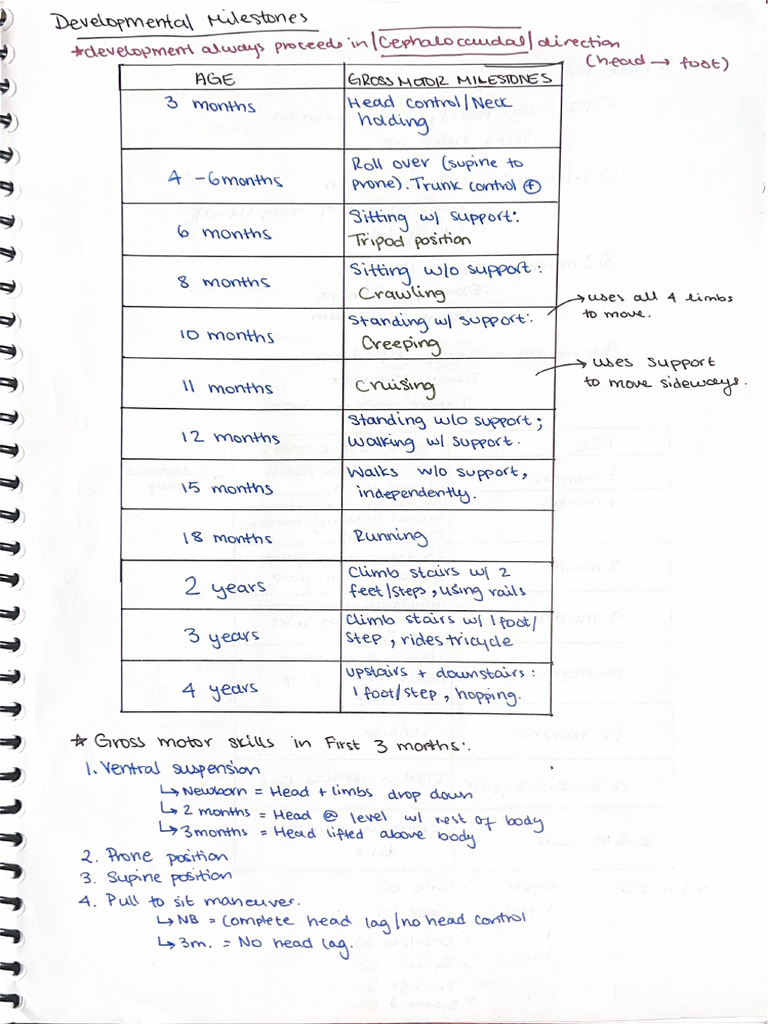 Developmental Milestones
*development always proceeds in/Cephalocaudal/direction
(head → foot)
AGE GROSS MOTOR MILESTONES
3 months Head control/Neck
holding
4-6months Roll over (supine to
prone). Trunk control ⊕
6 months Sitting w/ support:
Tripod position
8 months Sitting w/o support:
Crawling
→uses all 4 limbs
to move.
10 months Standing w/ support:
Creeping
→ uses support
to move sideways.
11 months Cruising
12 months Standing w/o support;
Walking w/ support.
15 months Walks w/o support,
independently.
18 months Running
2 years Climb stairs w/ 2
feet/steps, using rails
3 years Climb stairs w/ 1 foot/
step, rides tricycle
4 years upstairs + downstairs:
1 foot/step, hopping.
* Gross motor skills in First 3 months:
1. Ventral suspension
↳ Newborn = Head + limbs drop down
↳ 2 months = Head @ level w/ rest of body
↳ 3 months = Head lifted above body
2. Prone position
3. Supine position
4. Pull to sit maneuver.
↳ NB = Complete head lag/no head control
↳ 3m. = No head lag.